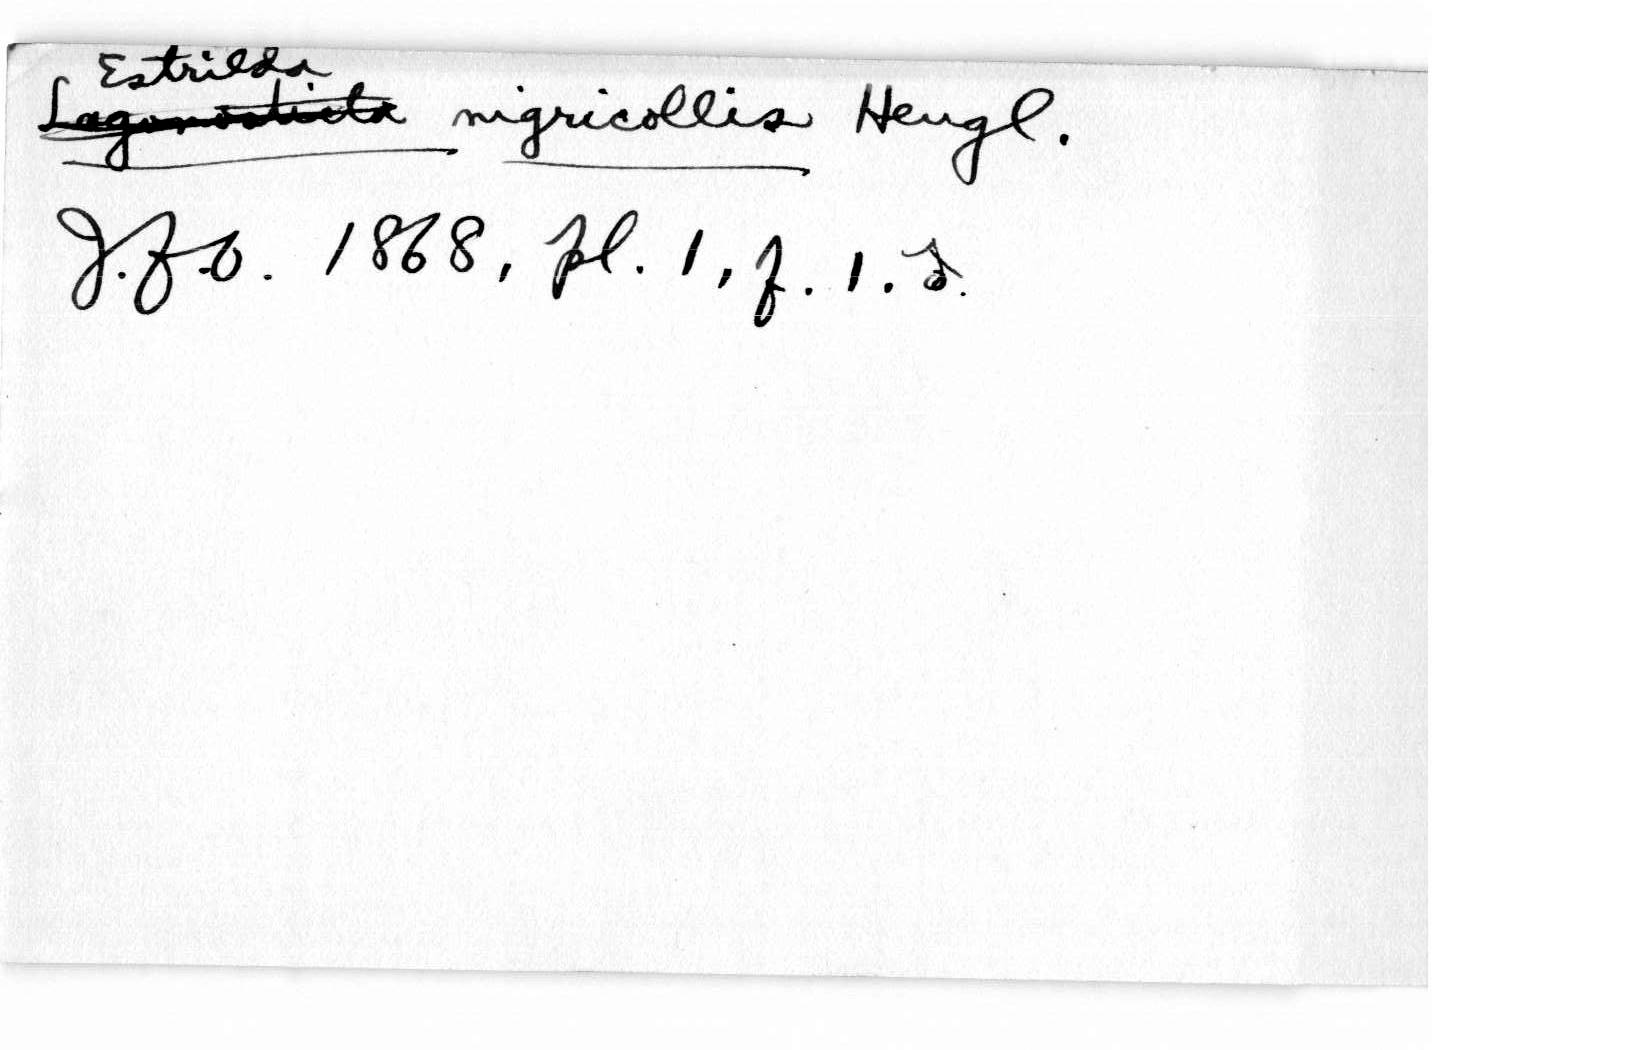 Estrilda
Lagonosticta nigricollis Heugl.
J.f.O. 1868, pl. 1, f. 1. ♂.